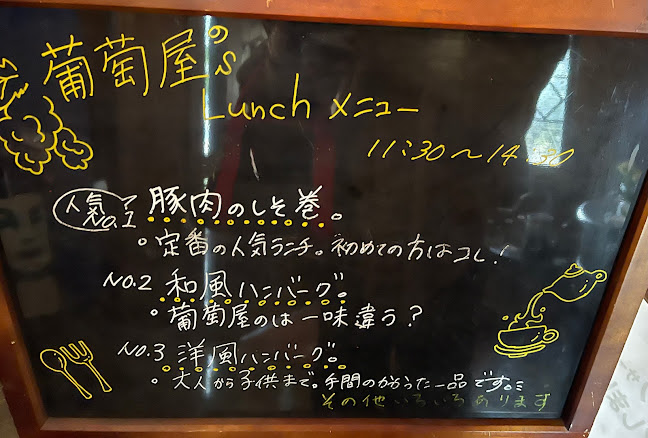 葡萄屋の's
Lunch メニュー
11:30〜14:30
人気No.1 豚肉のしそ巻。
。定番の人気ランチ。初めての方はコレ！
No.2 和風ハンバーグ。
。葡萄屋のは一味違う？
No.3 洋風ハンバーグ。
。大人から子供まで。手間のかかった一品です。
その他いろいろあります